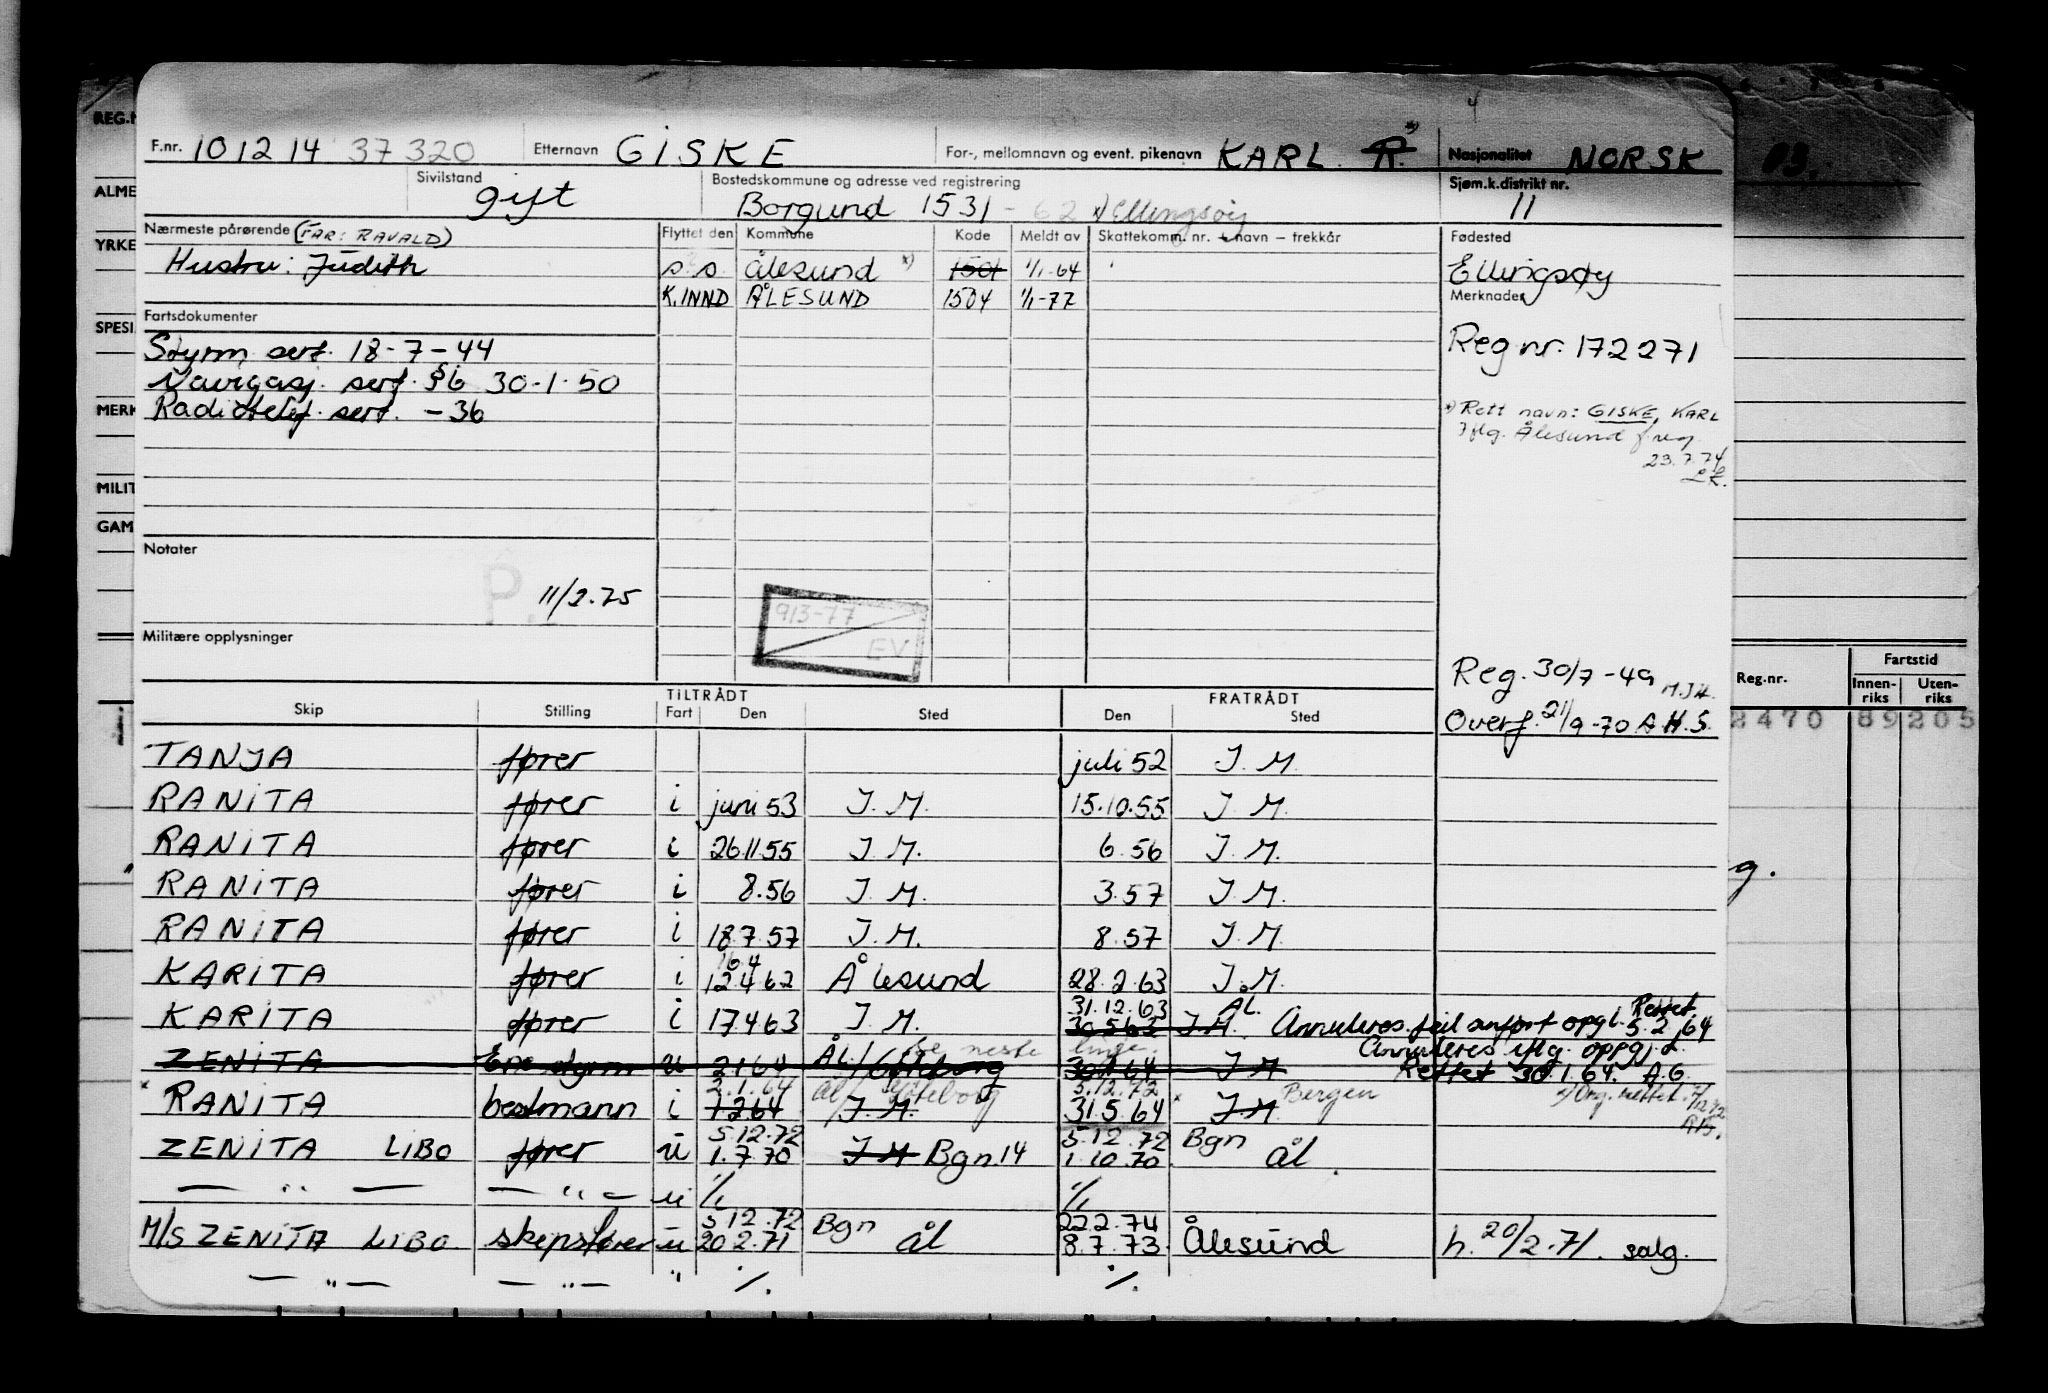 F.nr. 10 12 14 37 320 Etternavn GISKE For-, mellomnavn og event. pikenavn KARL R. *) Nasjonalitet NORSK
Sivilstand gift Bostedskommune og adresse ved registrering Borgund 1531 - 62 *) Ellingsøy Sjøm.k.distrikt nr. 11
Nærmeste pårørende (FAR: RAVALD) Flyttet den Kommune Kode Meldt av Skattekomm. nr. + navn – trekkår Fødested
Hustru: Judith s.s. Ålesund *) 1501 1/1-64 Ellingsøy
K.INND ÅLESUND 1504 1/1-77 Merknader
Fartsdokumenter
Styrm. sert. 18-7-44 Reg nr. 172271
Navigasj. sert. §6 30-1-50
Radiotelf. sert. -36 *) Rett navn: GISKE, KARL
Iflg. Ålesund f.reg.
23.7.74
Notater
11/2.75
913-77
EV
Militære opplysninger
Reg. 30/7-49
Overf. 21/9-70 A.H.S.
TILTRÅDT FRATRÅDT
Skip Stilling Fart Den Sted Den Sted
TANJA fører juli 52 J.M.
RANITA fører i juni 53 J.M. 15.10.55 J.M.
RANITA fører i 26.11.55 J.M. 6.56 J.M.
RANITA fører i 8.56 J.M. 3.57 J.M.
RANITA fører i 18.7.57 J.M. 8.57 J.M.
KARITA fører i 12.4.62 Ålesund 28.2.63 J.M.
31.12.63 ÅL. Rettet
KARITA fører i 17.4.63 J.M. 30.5.63 J.M. Annuleres. feil anført oppgl. 5.2.64
se neste linje. Annuleres iflg. oppg.
ZENITA Ene styrm u 2.1.64 ÅL/Göteborg 30.1.64 J.M Rettet 30.1.64. A.G.
2.1.64 ål/Göteborg 5.12.72 Bergen
* RANITA bestmann i 1.2.64 J.M. 31.5.64 * J.M
5.12.72 5.12.72 Bgn
ZENITA LIBO fører u 1.7.70 J.M Bgn. 14 1.10.70 ål.
— " — — " — u ./. ./.
5.12.72 Bgn 22.2.74
M/S ZENITA LIBO skipsfører u 20.2.71 ål 8.7.73. Ålesund h. 20/2.71. salg.
— " — — " — " ./. ./.
REG.N
ALME
YRKE
SPESI
MERK
MILIT
GAM
Fartstid
Reg.nr. Innen-riks Uten-riks
2470 89205
g.